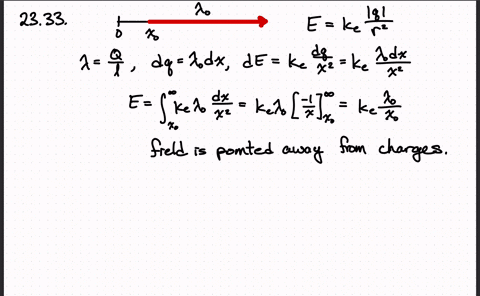 23.33.
λ₀
0 x₀
E = kₑ |q|/r²
λ = Q/l , dq = λ₀dx, dE = kₑ dq/x² = kₑ λ₀dx/x²
E = ∫_{x₀}^{∞} kₑ λ₀ dx/x² = kₑλ₀ [-1/x]_{x₀}^{∞} = kₑ λ₀/x₀
field is pointed away from charges.